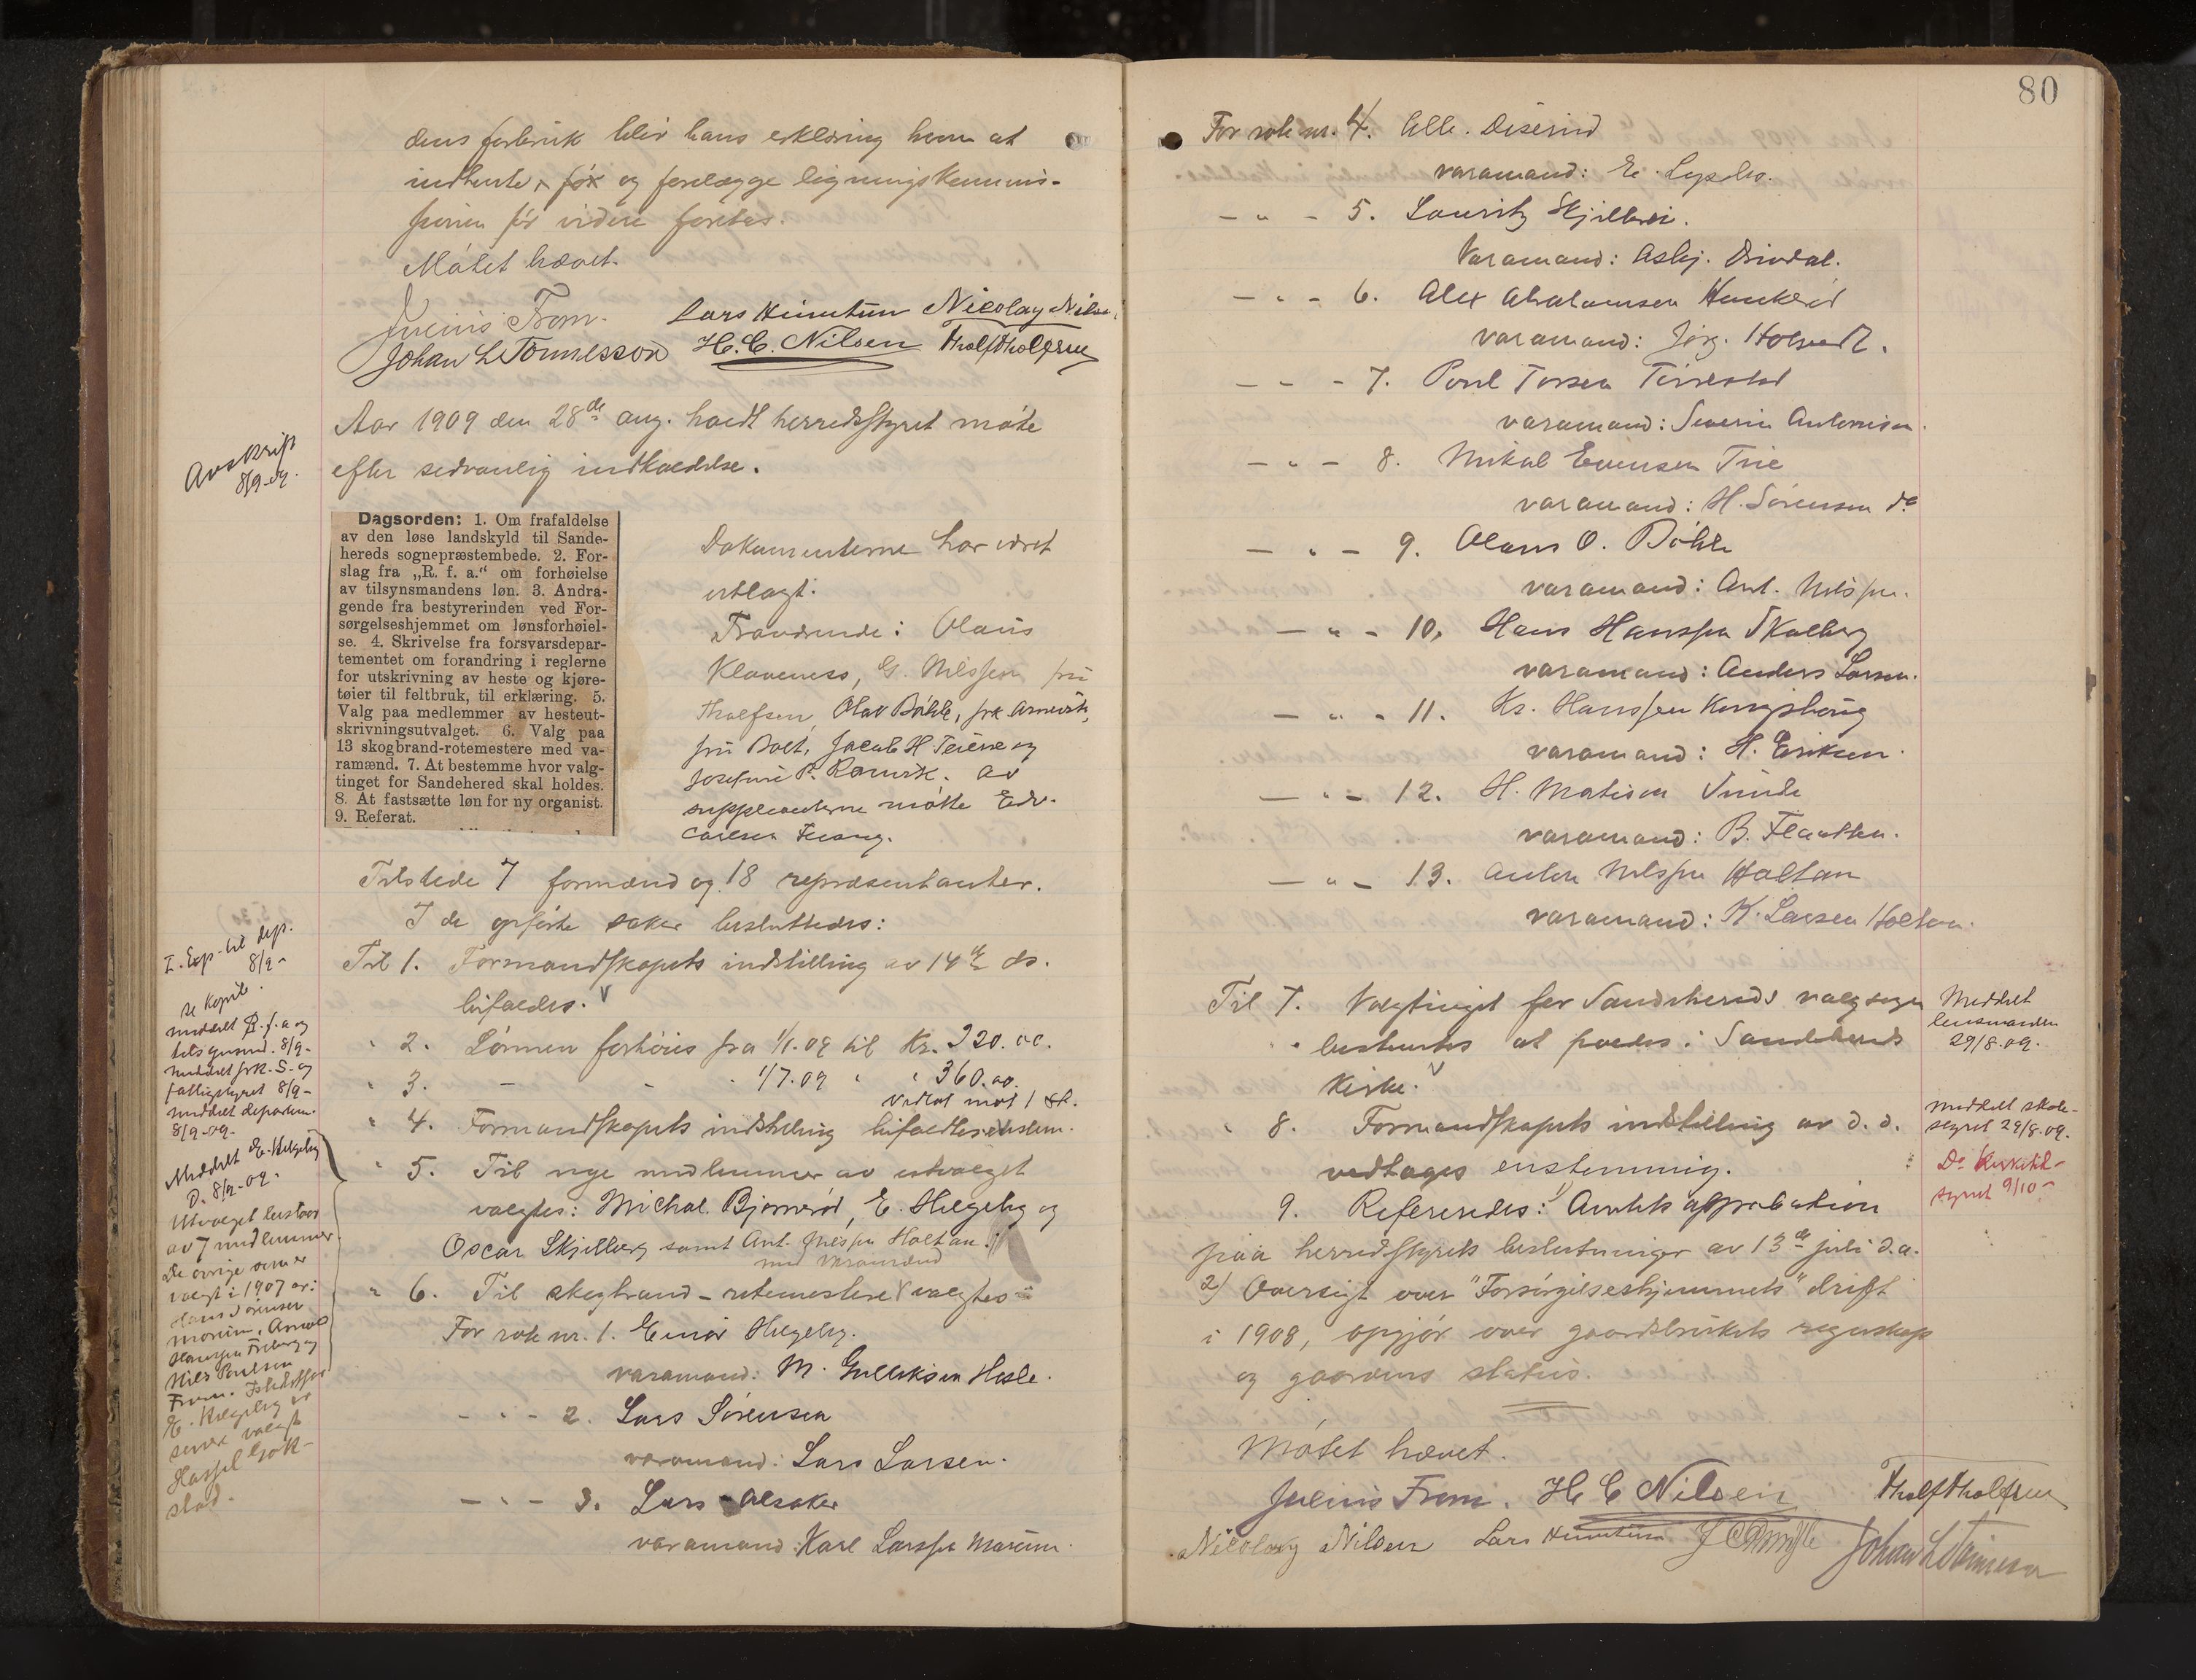 dens forbruk blir hans erklæring herom at
indhente og forelægge ligningskommis-
sionen før videre foretas.
Møtet hævet.
Julius Fram. Lars Himtun Nicolay Nilsen
Johan L Tønnesson H. C. Nilsen Tholf Tholfsen
Avskrift
8/9-09.
Aar 1909 den 28de aug. holdt herredsstyret møte
efter sedvanlig indkaldelse.
Dagsorden: 1. Om frafaldelse
av den løse landskyld til Sande-
hereds sognepræstembede. 2. For-
slag fra „R. f. a." om forhøielse
av tilsynsmandens løn. 3. Andra-
gende fra bestyrerinden ved For-
sørgelseshjemmet om lønsforhøiel-
se. 4. Skrivelse fra forsvarsdepar-
tementet om forandring i reglerne
for utskrivning av heste og kjøre-
tøier til feltbruk, til erklæring. 5.
Valg paa medlemmer av hesteut-
skrivningsutvalget. 6. Valg paa
13 skogbrand-rotemestere med va-
ramænd. 7. At bestemme hvor valg-
tinget for Sandehered skal holdes.
8. At fastsætte løn for ny organist.
9. Referat.
Dokumenterne har været
utlagt.
Fraværende: Olaus
Klaveness, G. Nilssen, fru
Tholfsen, Olav Bøhle, frk.
fru Bolt, Jacob H Teiene og
Josefine P. Av
suppleanterne møtte Edv.
Carlsen
Tilstede 7 formænd og 18 repræsentanter.
I de opførte saker besluttedes:
Til 1. Formandskapets indstilling av 14de ds.
bifaldes.
" 2. Lønnen forhøies fra 1/1.09 til Kr. 320.00.
" 3. - - 1/7.09 " " 360.00.
Vedtat mot 1 st.
" 4. Formandskapets indstilling bifaldtes enstem.
" 5. Til nye medlemmer av utvalget
valgtes: Michal Bjørnerød, E. Helgeby og
Oscar Skjelberg samt Ant. Nilssen Haltan.
med varamænd
" 6. Til skogbrand-rotemestere valgtes:
For rode nr. 1. Einar Helgeby.
varamand: M. Gulliksen Hasle.
- " - 2. Lars Sørensen
varamand: Lars Larsen.
- " - 3. Lars Alsaker
varamand: Karl Larssen
I. Exp. til dep.
8/9-
se kopib.
meddelt R. f. a og
tilsynsmd. 8/9-
meddelt frk. S. og
fattigstyret 8/9-
meddelt departem.
8/9-09-
Meddelt E. Helgeby
D. 8/9-09-
Utvalget bestaar
av 7 medlemmer.
De øvrige som er
valgt i 1907 er:
Hans Sørensen
Hanssen Freberg og
Nils Paulsen
Fram.
E. Helgeby er
senere valgt
80
For rode nr. 4. Alb.
varamand: E.
- " - 5. Lauritz Skjelbrei.
Varamand: Asbj. Brydal.
- " - 6. Alex Abrahamsen
varamand: Jørg. Holmedt.
- - - 7. Poul Torsen
varamand: Severin Antonisen.
- " - 8. Mikal Evensen
varamand: H. Sørensen do
- " - 9. Olaus O. Bøhle
varamand: Ant. Nilssen.
- " - 10. Hans Hanssen Skalberg
varamand: Anders Larsen.
- " - 11. Kr. Hanssen Kongsberg
varamand: H. Eriksen.
- " - 12. H. Matisen Sunde
varamand: B.
- " - 13. Anton Nilssen Haltan
varamand: K. Larsen Holtan.
Til 7. Valgtinget for Sandehereds valgsogn
bestemtes at holdes i Sandehereds
kirke.
Meddelt
lensmanden
29/8.09.
" 8. Formandskapets indstilling av d. d.
vedtages enstemmig.
Meddelt skole-
styret 29/8.09.
Do kirketil-
synet 9/10-
9. Refereredes: 1) Amtets approbation
paa herredstyrets beslutninger av 13de juli d.a.
2) Oversigt over "Forsørgelseshjemmets" drift
i 1908, opgjør over gaardsbrukets regnskap
og gaardens status.
Møtet hævet.
Julius Fram. H C Nilsen Tholf Tholfsen
Nicolay Nilsen Lars Himtun Johan L Tønnesson